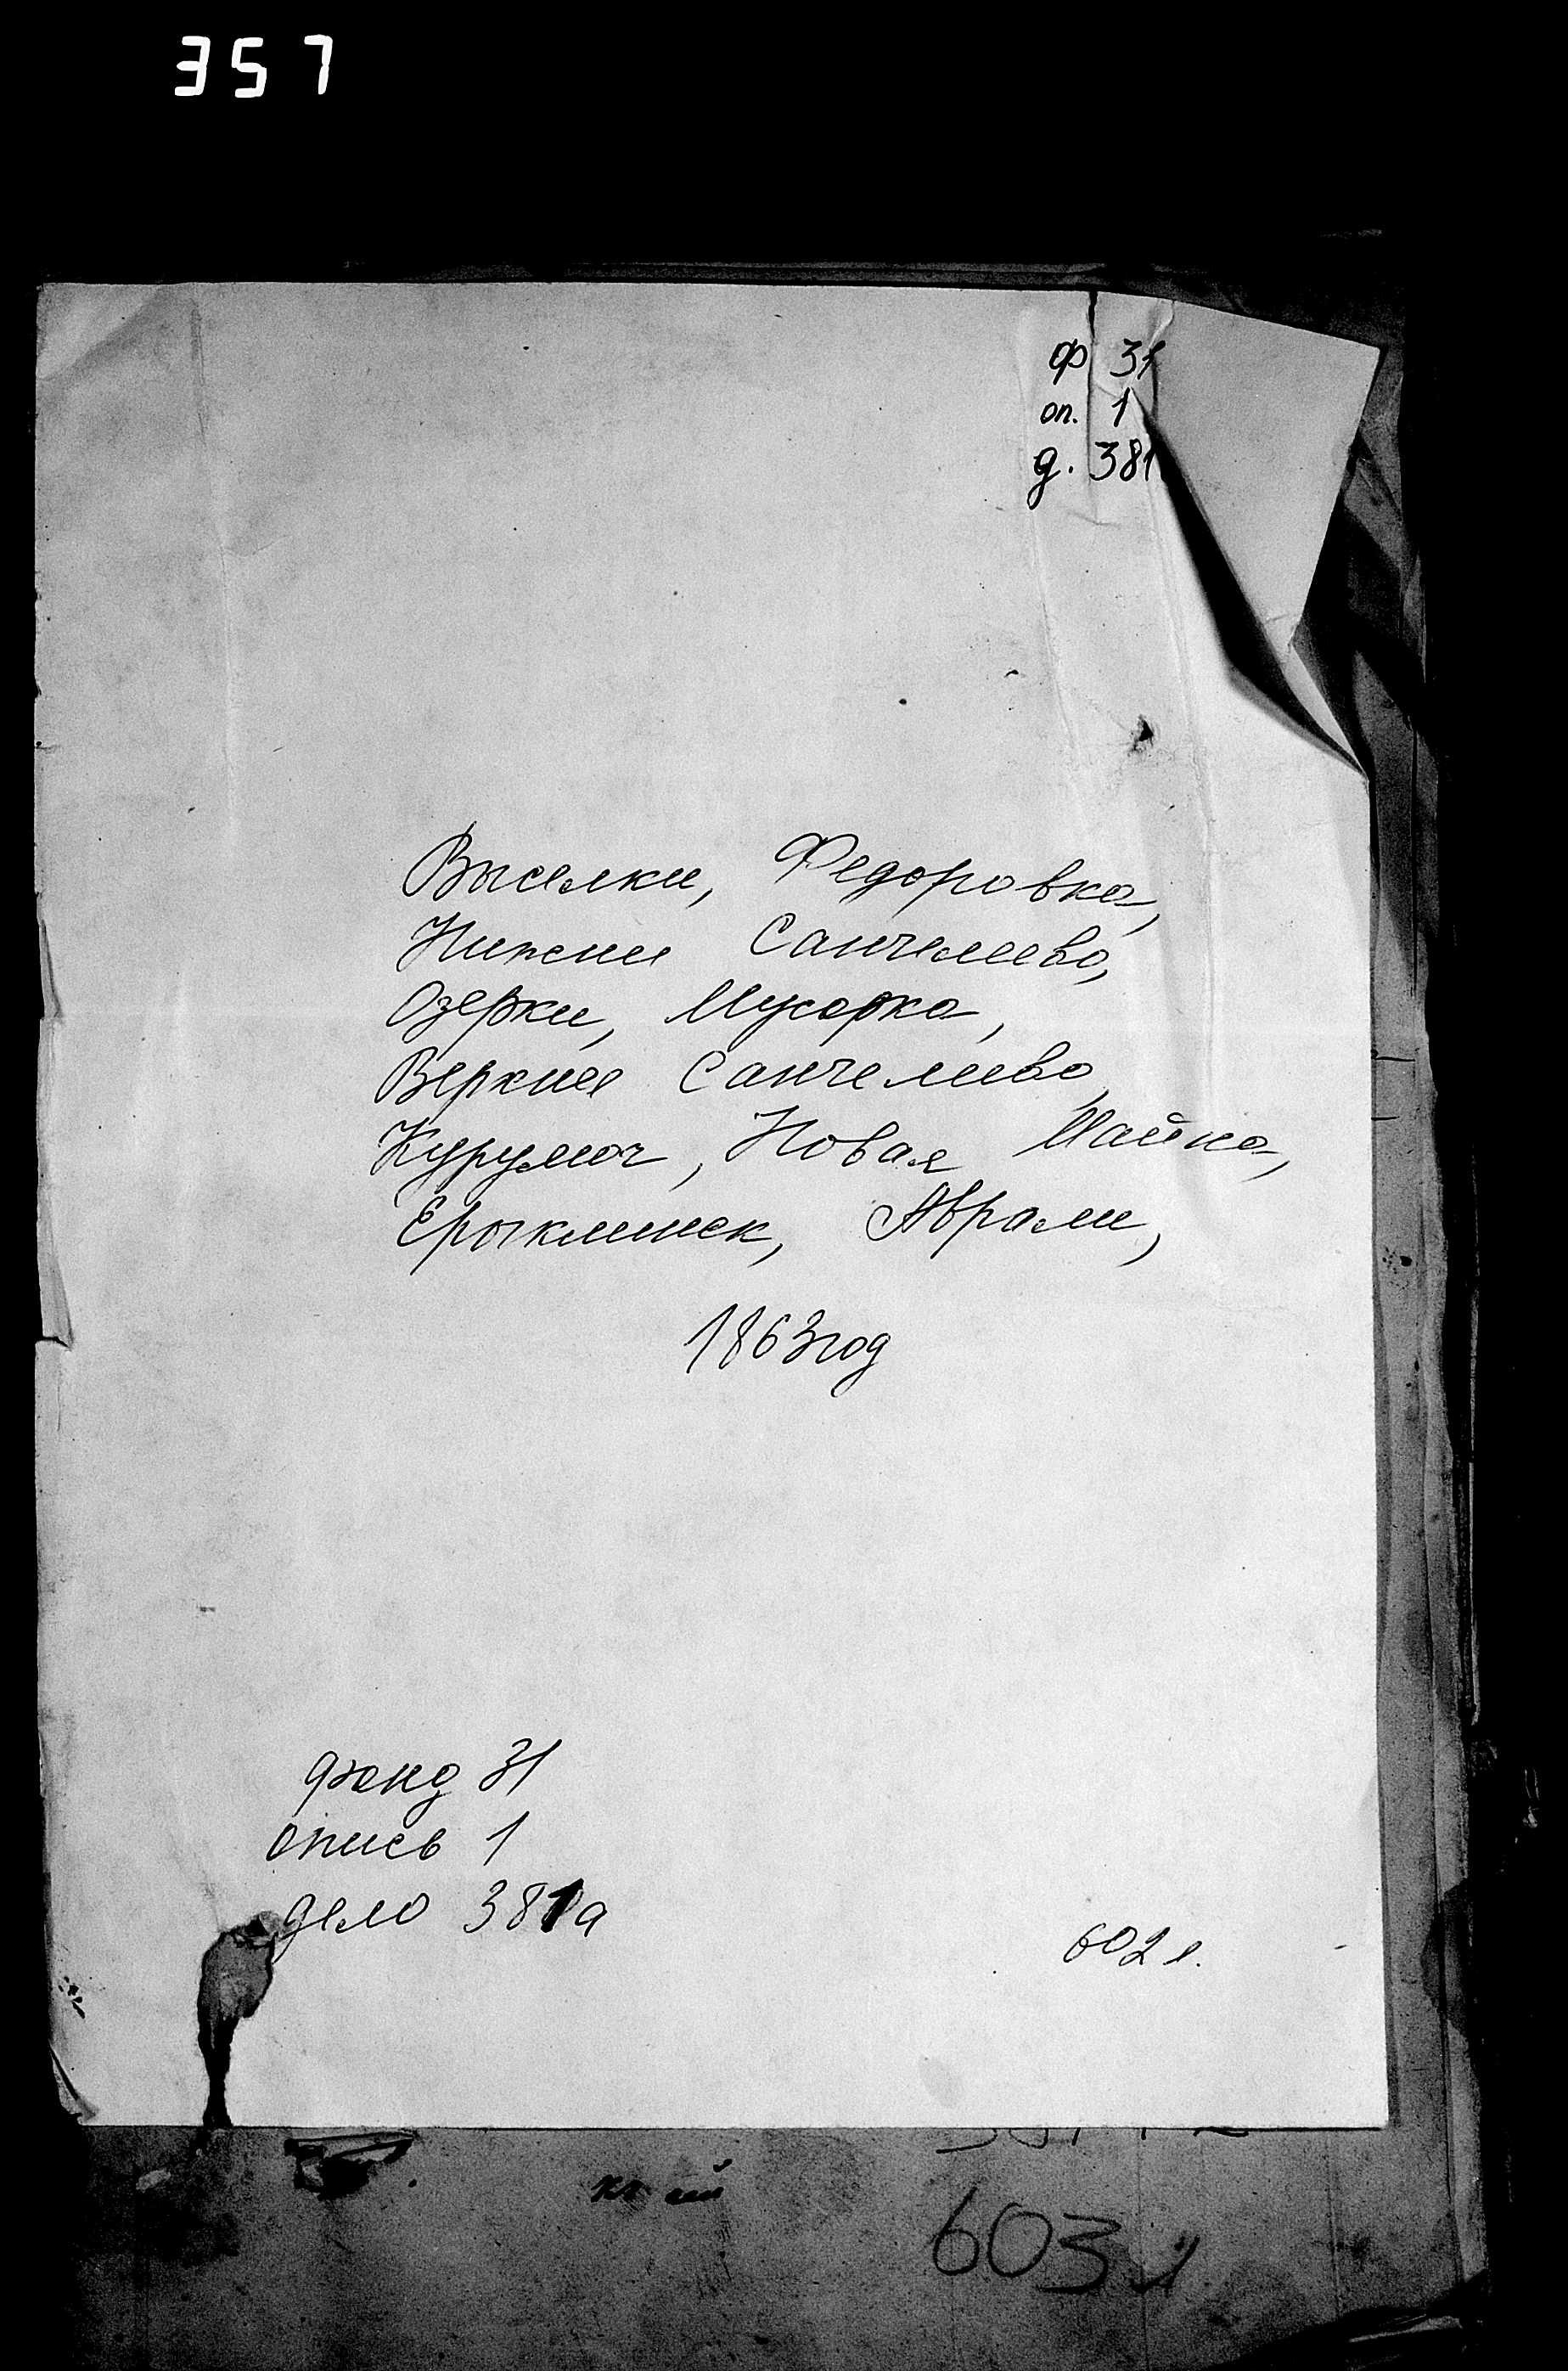 357
ф 31
оп. 1
д. 381
Выселки, Федоровка,
Нижнее Санчелеево,
Озерки, Мусорка,
Верхнее Санчелеево,
Курумоч, Новая Майна,
Ерыклинск, Аврали,
1863 год
фонд 31
опись 1
дело 381а
602 л.
603 л